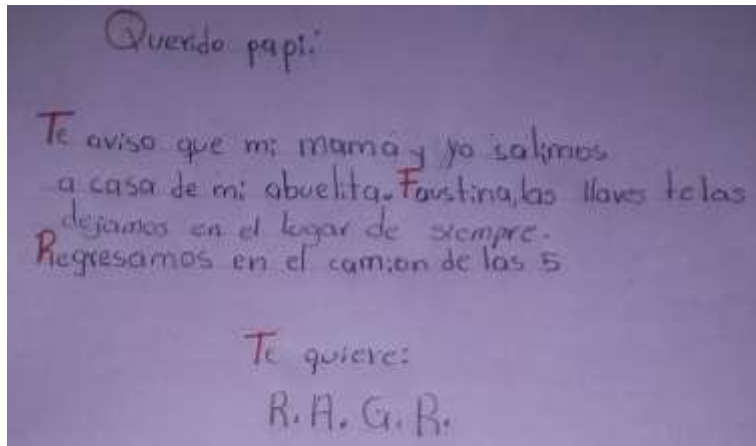 Querido papi:
Te aviso que mi mamá y yo salimos
a casa de mi abuelita. Faustina, las llaves te las
dejamos en el lugar de siempre.
Regresamos en el camion de las 5
Te quiere:
R. A. G. R.